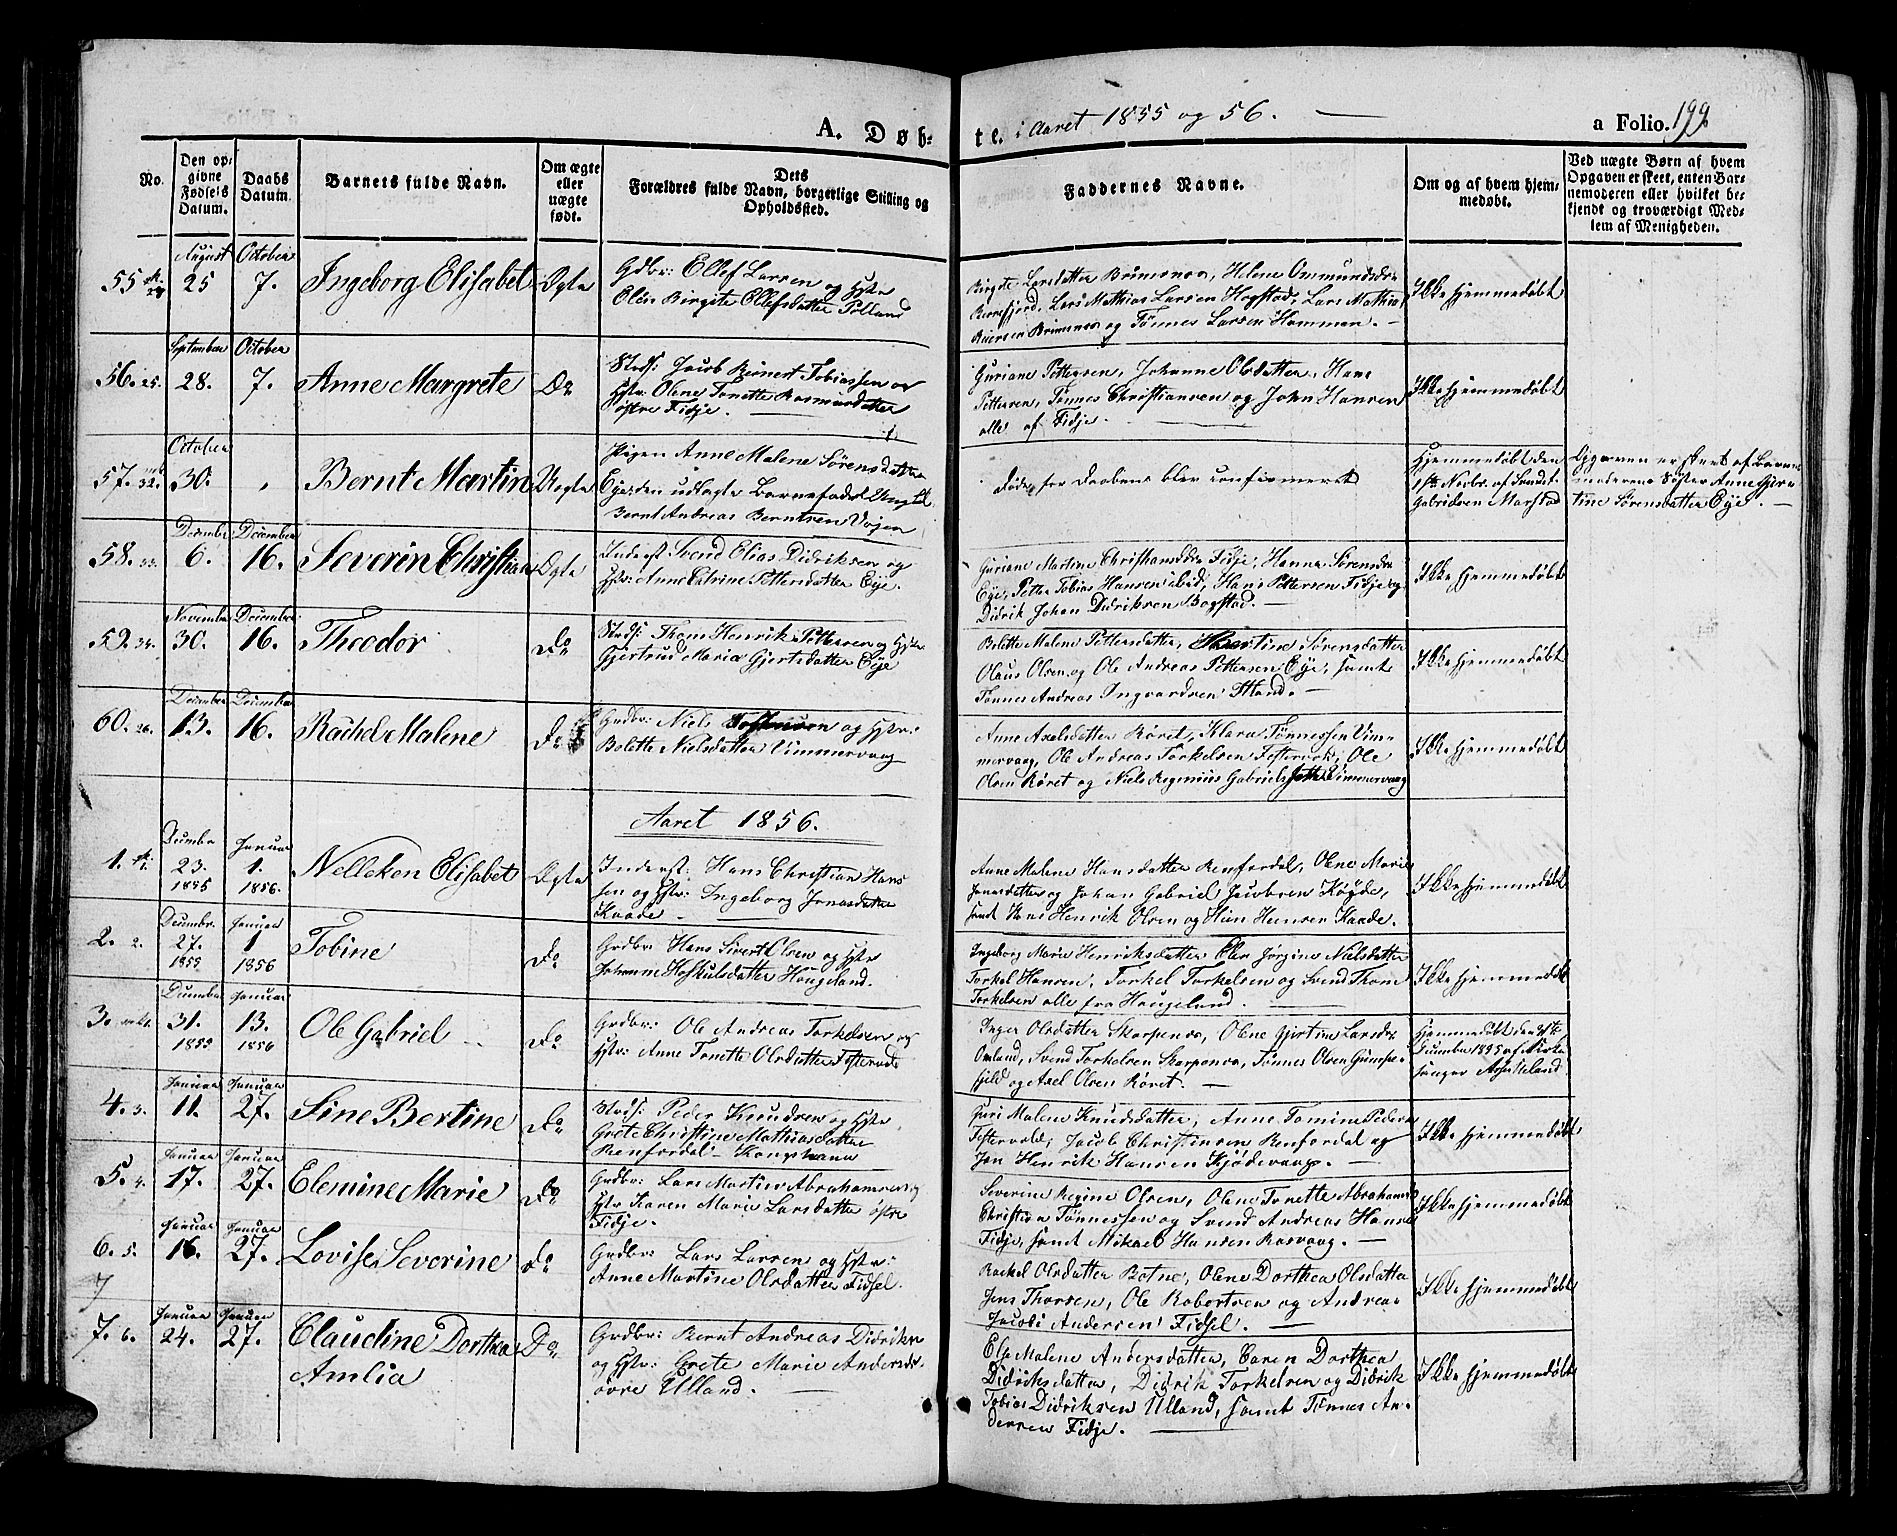 A. Døb-
te. i Aaret 1855 og 56. —
a Folio. 199.
No.
Den op-
givne
Fødsels
Datum.
Daabs
Datum.
Barnets fulde Navn.
Om ægte
eller
uægte
født.
Dets
Forældres fulde Navn, borgerlige Stilling og
Opholdssted.
Faddernes Navne.
Om og af hvem hjem-
medøbt.
Ved uægte Børn af hvem
Opgaven er skeet, enten Bar-
nemoderen eller hvilket be-
kjendt og troværdigt Med-
lem af Menigheden.
August October
55 25 7. Ingeborg Elisabet Ægte
Gdbr: Ellef Larsen og Hstr
Olene Birgite Ellefsdatter Tolland
Birgite Larsdatter Brimsnes, Helene Ommundsdr
Lars Mathias Larsen Hogstad, Lars Mathias
Brimsnes og Tønnes Larsen Hammen. —
Ikke hjemmedøbt
September October
56. 25. 28. 7. Anne Margrete Do
Strds: Jacob Bernt Tobiassen og
Hstr Olene Tonette Rasmusdatter
østre Fidje. —
Guriane Pettersen, Johanne Olsdatter, Hans
Pettersen, Tønnes Christiansen og John Hansen
alle af Fidje. —
Ikke hjemmedøbt
October
57. 32. 30. Bernt Martin Uægte
Pigen Anne Malene Sørensdatter
Eye, den udlagte Barnefader Ungkl
Bernt Andreas Berntsen Vojen
døde før Daabens blev confirmeret
Hjemmedøbt den
1ste Novbr. af Svend
Gabrielsen Marstad
Opgaven er skeet af Barne-
moderens Søster Anne
tine Sørensdatter Eye. —
December December
58. 33. 6. 16. Severin Christian Ægte
Inderst Svend Elias Didriksen og
Hstr: Anne Catrine Pettersdatter Eye.
Guriane Martine Christiansddr Fidje, Hanne Sørensdr
Eye, Petter Tobias Hansen ibid, Hans Pettersen Fidje og
Didrik Johan Didriksen Bogstad. —
Ikke hjemmedøbt
November December
59. 34. 30. 16. Theodor Do
Strds: Thom Henrik Pettersen og Hstr
Gjertrud Maria Gjertsdatter Eye
Bolette Malene Pettersdatter, Sørensdatter
Olaus Olsen og Ole Andreas Pettersen Eye, samt
Tønnes Andreas Ingvardsen
Ikke hjemmedøbt
December December
60. 26. 13. 16. Rachel Malene Do
Grdbr: Niels og Hstr:
Bolette Nielsdatter Ummervaag
Anne Axelsdatter Røret, Klara Tønnesen Um-
mervaag, Ole Andreas Torkelsen Festervold, Ole
Olsen Røret og Niels Regenius Gabrielsen Ummervaag
Ikke hjemmedøbt
Aaret 1856.
Decembr Januar
1. 1. 23. 1. Nelleken Elisabet Ægte
1855 1856.
Inderst: Hans Christian Hans
sen og Hstr: Ingeborg Jonasdatter
Kaade. —
Anne Malene Hansdatter Renfordal, Olene Marie
Jonasdatter og Johan Gabriel Jacobsen Køyde,
samt Hans Henrik Olsen og Hansen Kaade.
Ikke hjemmedøbt
Decembr. Januar
2. 2. 27. 1 Tobine Do
1855 1856
Grdbr: Hans Sivert Olsen og Hstr
Johanne Hoskulsdatter Hougeland.
Ingeborg Marie Henriksdatter, Jørgine Nielsdatter
Torkel Hansen, Torkel Torkelsen og Svend Thom
Torkelsen alle fra Hougeland. —
Ikke hjemmedøbt
Decembr Januar
3. 31. 13. Ole Gabriel Do
1855 1856
Grdbr: Ole Andreas Torkelsen og
Hstr: Anne Tonette Olsdatter Festervold
Inger Olsdatter Skarpenes, Olene Larsdr
Omland, Svend Torkelsen Skarpenes, Tønnes Olsen
fjeld og Axel Olsen Røret. —
Hjemmedøbt den
Decembr 1855 af Kirke
sanger
Januar Januar
4. 3. 11. 27. Sine Bertine Do
Strds: Peder Knudsen og Hstr
Grete Christine Mathiasdatter
Renfordal
Guri Malene Knudsdatter, Anne Tomine Peders
Festervold, Jacob Christensen Renfordal og
Jon Henrik Hansen Kjødevaag. —
Ikke hjemmedøbt
Januar Januar
5. 4. 17. 27. Elemine Marie Do
Grdbr: Lars Martin Abrahamsen og
Hstr Karen Marie Larsdatter østre
Fidje.
Severine Regine Olsen, Olene Tonette Abrahams
Christian Tønnessen og Svend Andreas Hansen
Fidje, samt Mikael Hansen Rosvaag. —
Ikke hjemmedøbt
Januar Januar
6. 5. 16. 27. Lovise Severine Do
Grdbr: Lars Larsen og Hstr:
Anne Martine Olsdatter Fidsel.
Rackel Olsdatter Botne, Olene Dorthea Olsdatter
Jens Thorsen, Ole Robertsen og Andreas
Jacobi Andersen Fidsel. —
Ikke hjemmedøbt
7
Januar Januar
7. 6. 24. 27. Claudine Dorthea Do
Amlia
Grdbr: Bernt Andreas Didriksen
og Hstr: Grete Marie Andersdr
øvre Ulland. —
Else Malene Andersdatter, Caren Dorthea
Didriksdatter, Didrik Torkelsen og Didrik
Tobias Didriksen Ulland, samt Tønnes An-
dersen Fidje. —
Ikke hjemmedøbt